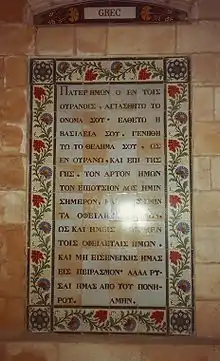 GREC
ΠΑΤΕΡ ΗΜΩΝ Ο ΕΝ ΤΟΙΣ
ΟΥΡΑΝΟΙΣ, ΑΓΙΑΣΘΗΤΩ ΤΟ
ΟΝΟΜΑ ΣΟΥ· ΕΛΘΕΤΩ Η
ΒΑΣΙΛΕΙΑ ΣΟΥ, ΓΕΝΗΘΗ
ΤΩ ΤΟ ΘΕΛΗΜΑ ΣΟΥ, ΩΣ
ΕΝ ΟΥΡΑΝΩ, ΚΑΙ ΕΠΙ ΤΗΣ
ΓΗΣ. ΤΟΝ ΑΡΤΟΝ ΗΜΩΝ
ΤΟΝ ΕΠΙΟΥΣΙΟΝ ΔΟΣ ΗΜΙΝ
ΣΗΜΕΡΟΝ,
ΤΑ ΟΦΕΙΛΗΜΑΤΑ
ΩΣ ΚΑΙ ΗΜΕΙΣ
ΤΟΙΣ ΟΦΕΙΛΕΤΑΙΣ ΗΜΩΝ.
ΚΑΙ ΜΗ ΕΙΣΕΝΕΓΚΗΣ ΗΜΑΣ
ΕΙΣ ΠΕΙΡΑΣΜΟΝ· ΑΛΛΑ ΡΥ
ΣΑΙ ΗΜΑΣ ΑΠΟ ΤΟΥ ΠΟΝΗ
ΡΟΥ. ΑΜΗΝ.